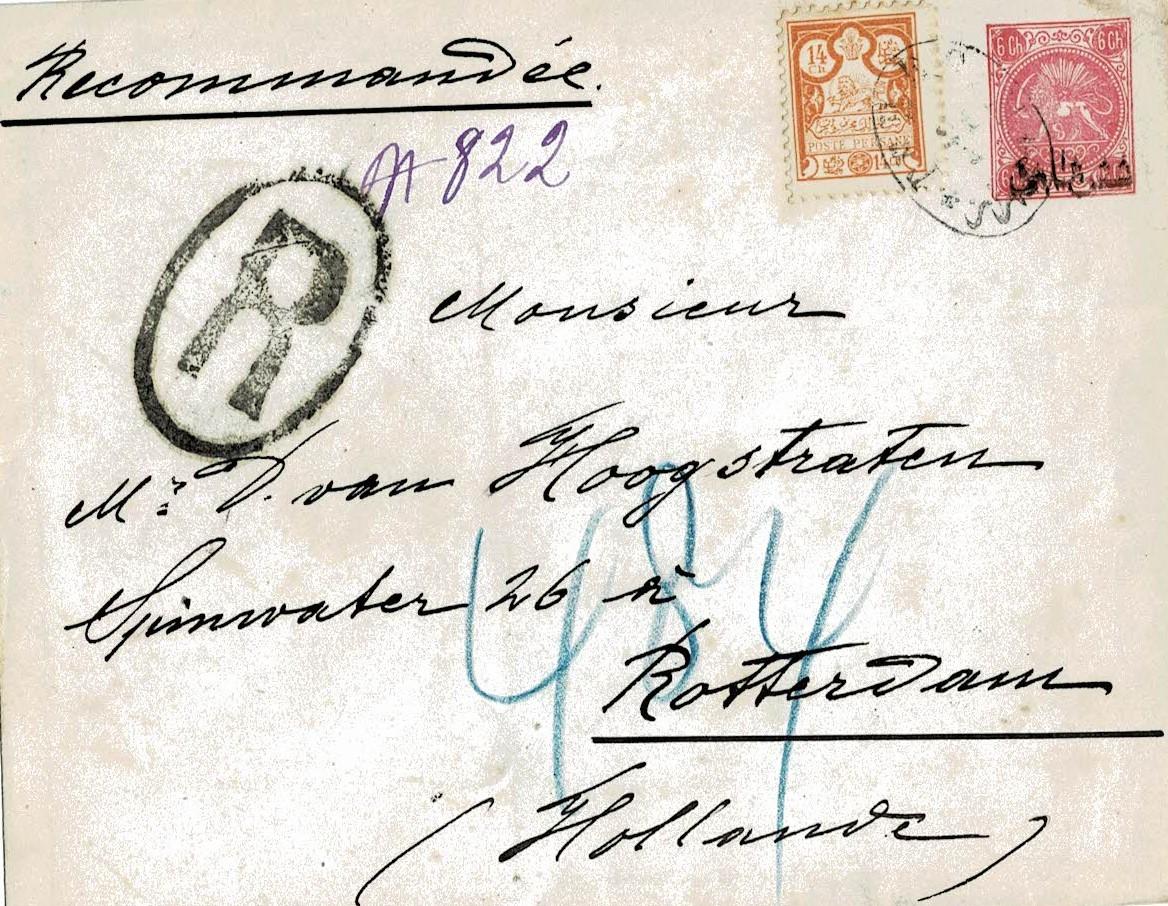 Recommandée.
A 822
14
CH
POSTE PERSANE
14
6 Ch 6 Ch
R
Monsieur
Mr D. van Hoogstraten
Spinwater 26 à
Rotterdam
(Hollande)
484